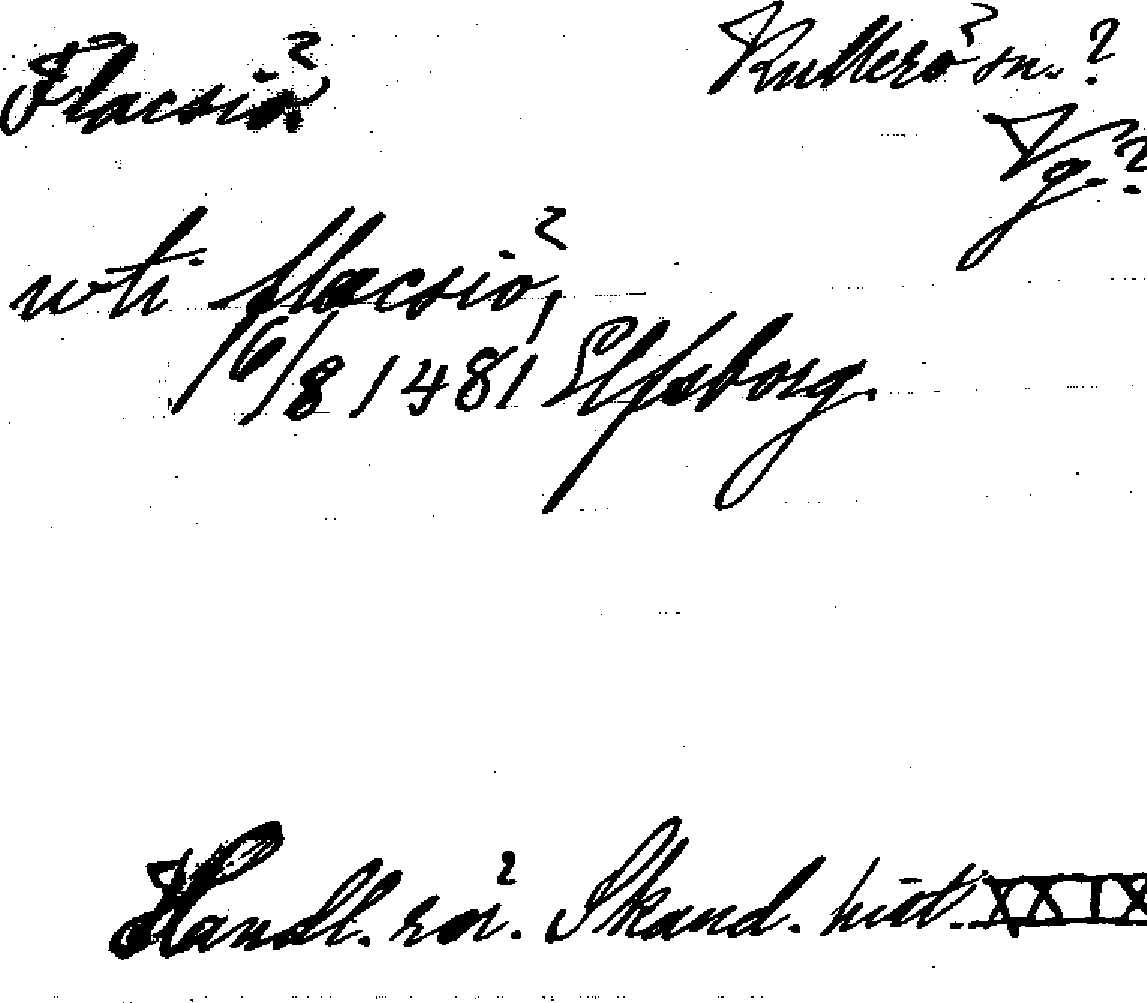 Flacsiö
Kullerö sn. ?
Vg. ?
uti fflacsiö,
16/8 1481 Elfsborg.
Handl. rör. Skand. hist. XXIX